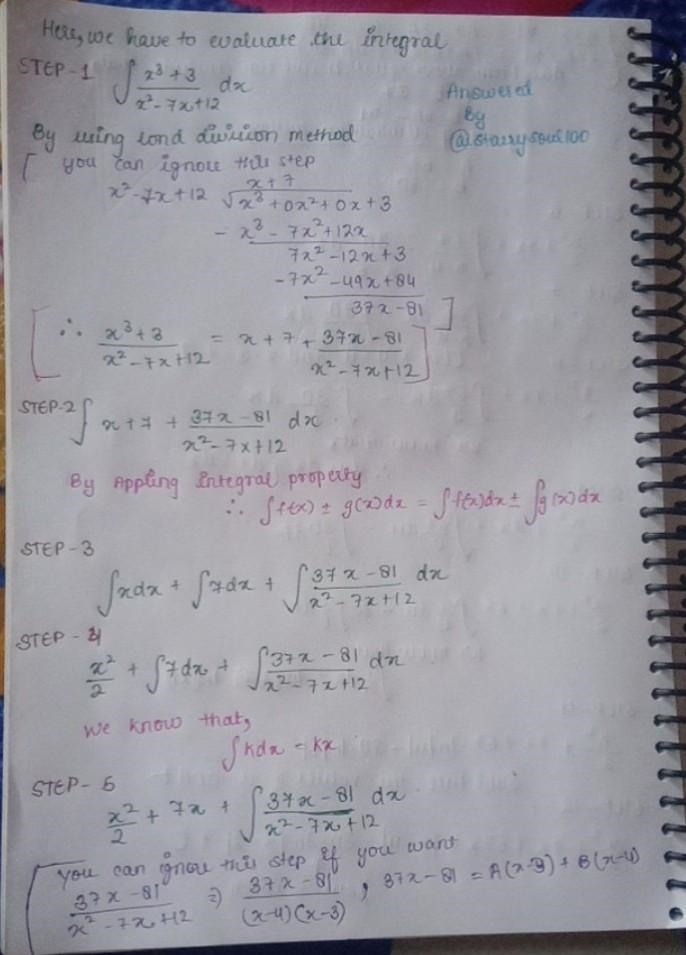 Here, we have to evaluate the integral
STEP-1 ∫ x³+3 / x²-7x+12 dx
Answered
By
@starrysoul100
By using lond division method
[ you can ignore this step
x+7
x²-7x+12 √x³+0x²+0x+3
- x³-7x²+12x
7x²-12x+3
-7x²-49x+84
37x-81 ]
[∴ x³+3 / x²-7x+12 = x+7+ 37x-81 / x²-7x+12]
STEP-2 ∫ x+7 + 37x-81 / x²-7x+12 dx
By Appling Integral property
∴ ∫f(x) ± g(x)dx = ∫f(x)dx ± ∫g(x)dx
STEP-3
∫xdx + ∫7dx + ∫ 37x-81 / x²-7x+12 dx
STEP-4
x²/2 + ∫7dx + ∫ 37x-81 / x²-7x+12 dx
we know that,
∫kdx = kx
STEP-5
x²/2 + 7x + ∫ 37x-81 / x²-7x+12 dx
[you can ignore this step if you want
37x-81 / x²-7x+12 ⇒ 37x-81 / (x-4)(x-3) , 37x-81 = A(x-3)+B(x-4)